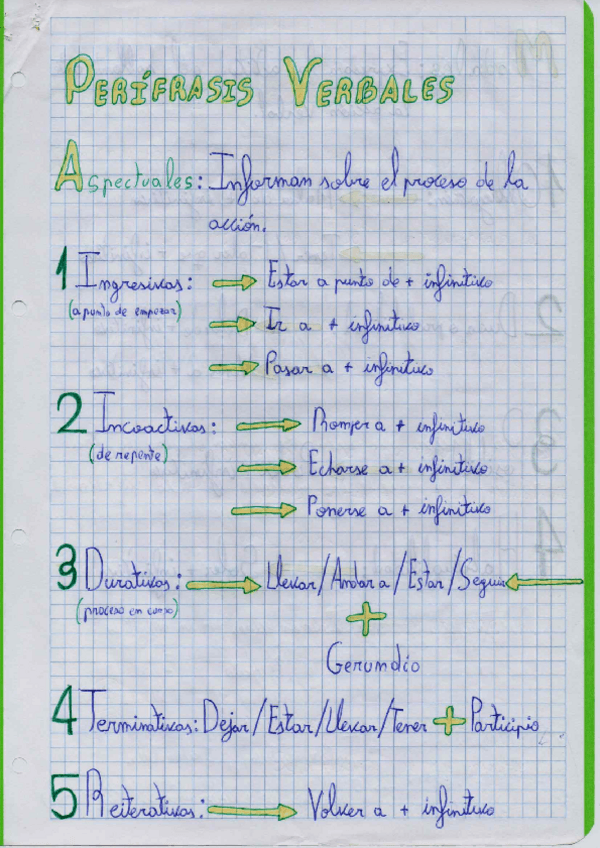 PERÍFRASIS VERBALES
Aspectuales: Informan sobre el proceso de la
acción.
1 Ingresivas: → Estar a punto de + infinitivo
(a punto de empezar)
→ Ir a + infinitivo
→ Pasar a + infinitivo
2 Incoactivas: → Romper a + infinitivo
(de repente)
→ Echarse a + infinitivo
→ Ponerse a + infinitivo
3 Durativas: → Llevar/Andar a/Estar/Seguir ←
(proceso en curso)
+
Gerundio
4 Terminativas: Dejar/Estar/Llevar/Tener + Participio
5 Reiterativas: → Volver a + infinitivo